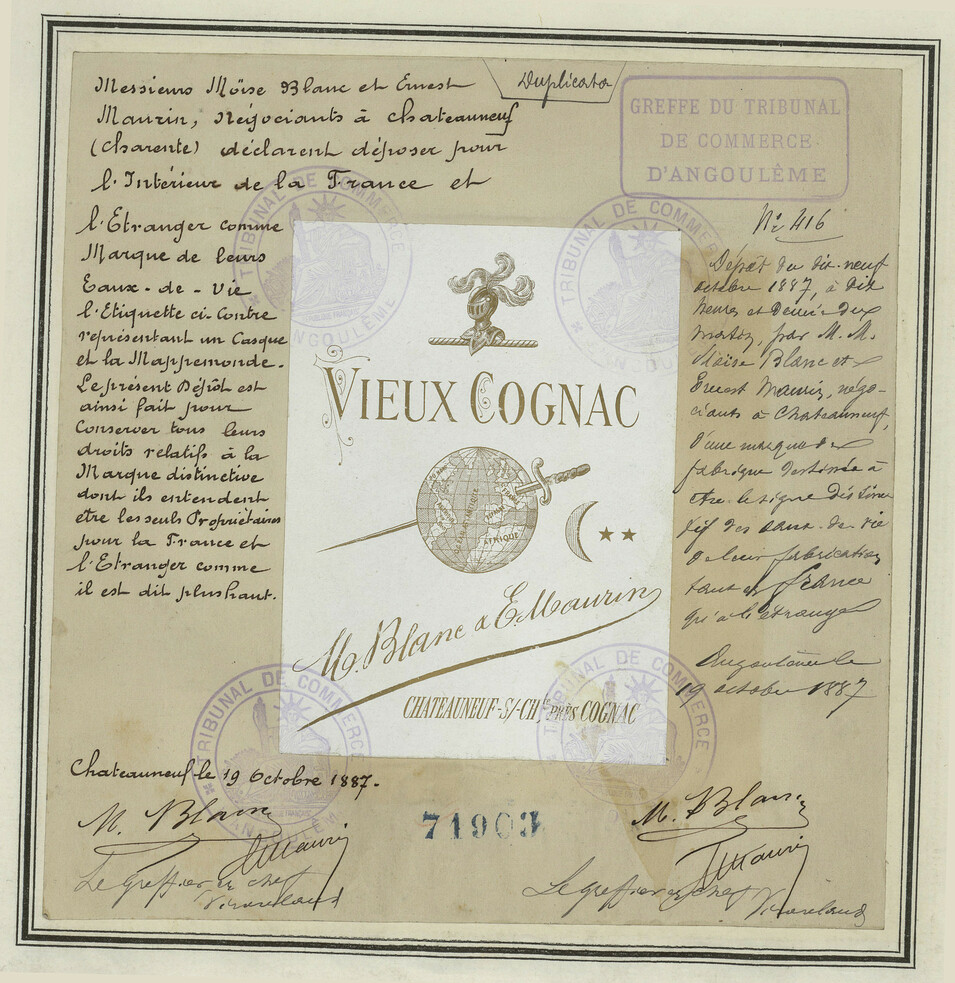 Duplicata
Messieurs Moïse Blanc et Ernest
Maurin, Négociants à Chateauneuf
(Charente) déclarent déposer pour
l'Intérieur de la France et
l'Etranger comme
Marque de leurs
Eaux-de-vie
l'Etiquette ci-Contre
représentant un Casque
et la Mappemonde.
Le présent Dépôt est
ainsi fait pour
Conserver tous leurs
droits relatifs à la
Marque distinctive
dont ils entendent
etre les seuls Propriétaires
pour la France et
l'Etranger comme
il est dit plus haut.
Chateauneuf le 19 Octobre 1887.
M. Blanc
E Maurin
Le greffier en chef
GREFFE DU TRIBUNAL
DE COMMERCE
D'ANGOULÊME
TRIBUNAL DE COMMERCE
ANGOULÊME
TRIBUNAL DE COMMERCE
ANGOULÊME
VIEUX COGNAC
OCÉAN ATLANTIQUE
AFRIQUE
M. Blanc & E. Maurin
CHATEAUNEUF-S/-CH.te PRÈS COGNAC
No 416
Dépôt du dix-neuf
octobre 1887, à dix
heures et demie du
matin, par M. M.
Moïse Blanc et
Ernest Maurin, négo-
ciants à Chateauneuf,
d'une marque de
fabrique destinée à
etre le signe distinc
tif des eaux-de-vie
de leur fabrication
tant en france
qu'à l'étranger
Angoulême le
19 octobre 1887
TRIBUNAL DE COMMERCE
ANGOULÊME
TRIBUNAL DE COMMERCE
71903
M. Blanc
E Maurin
Le greffier en chef